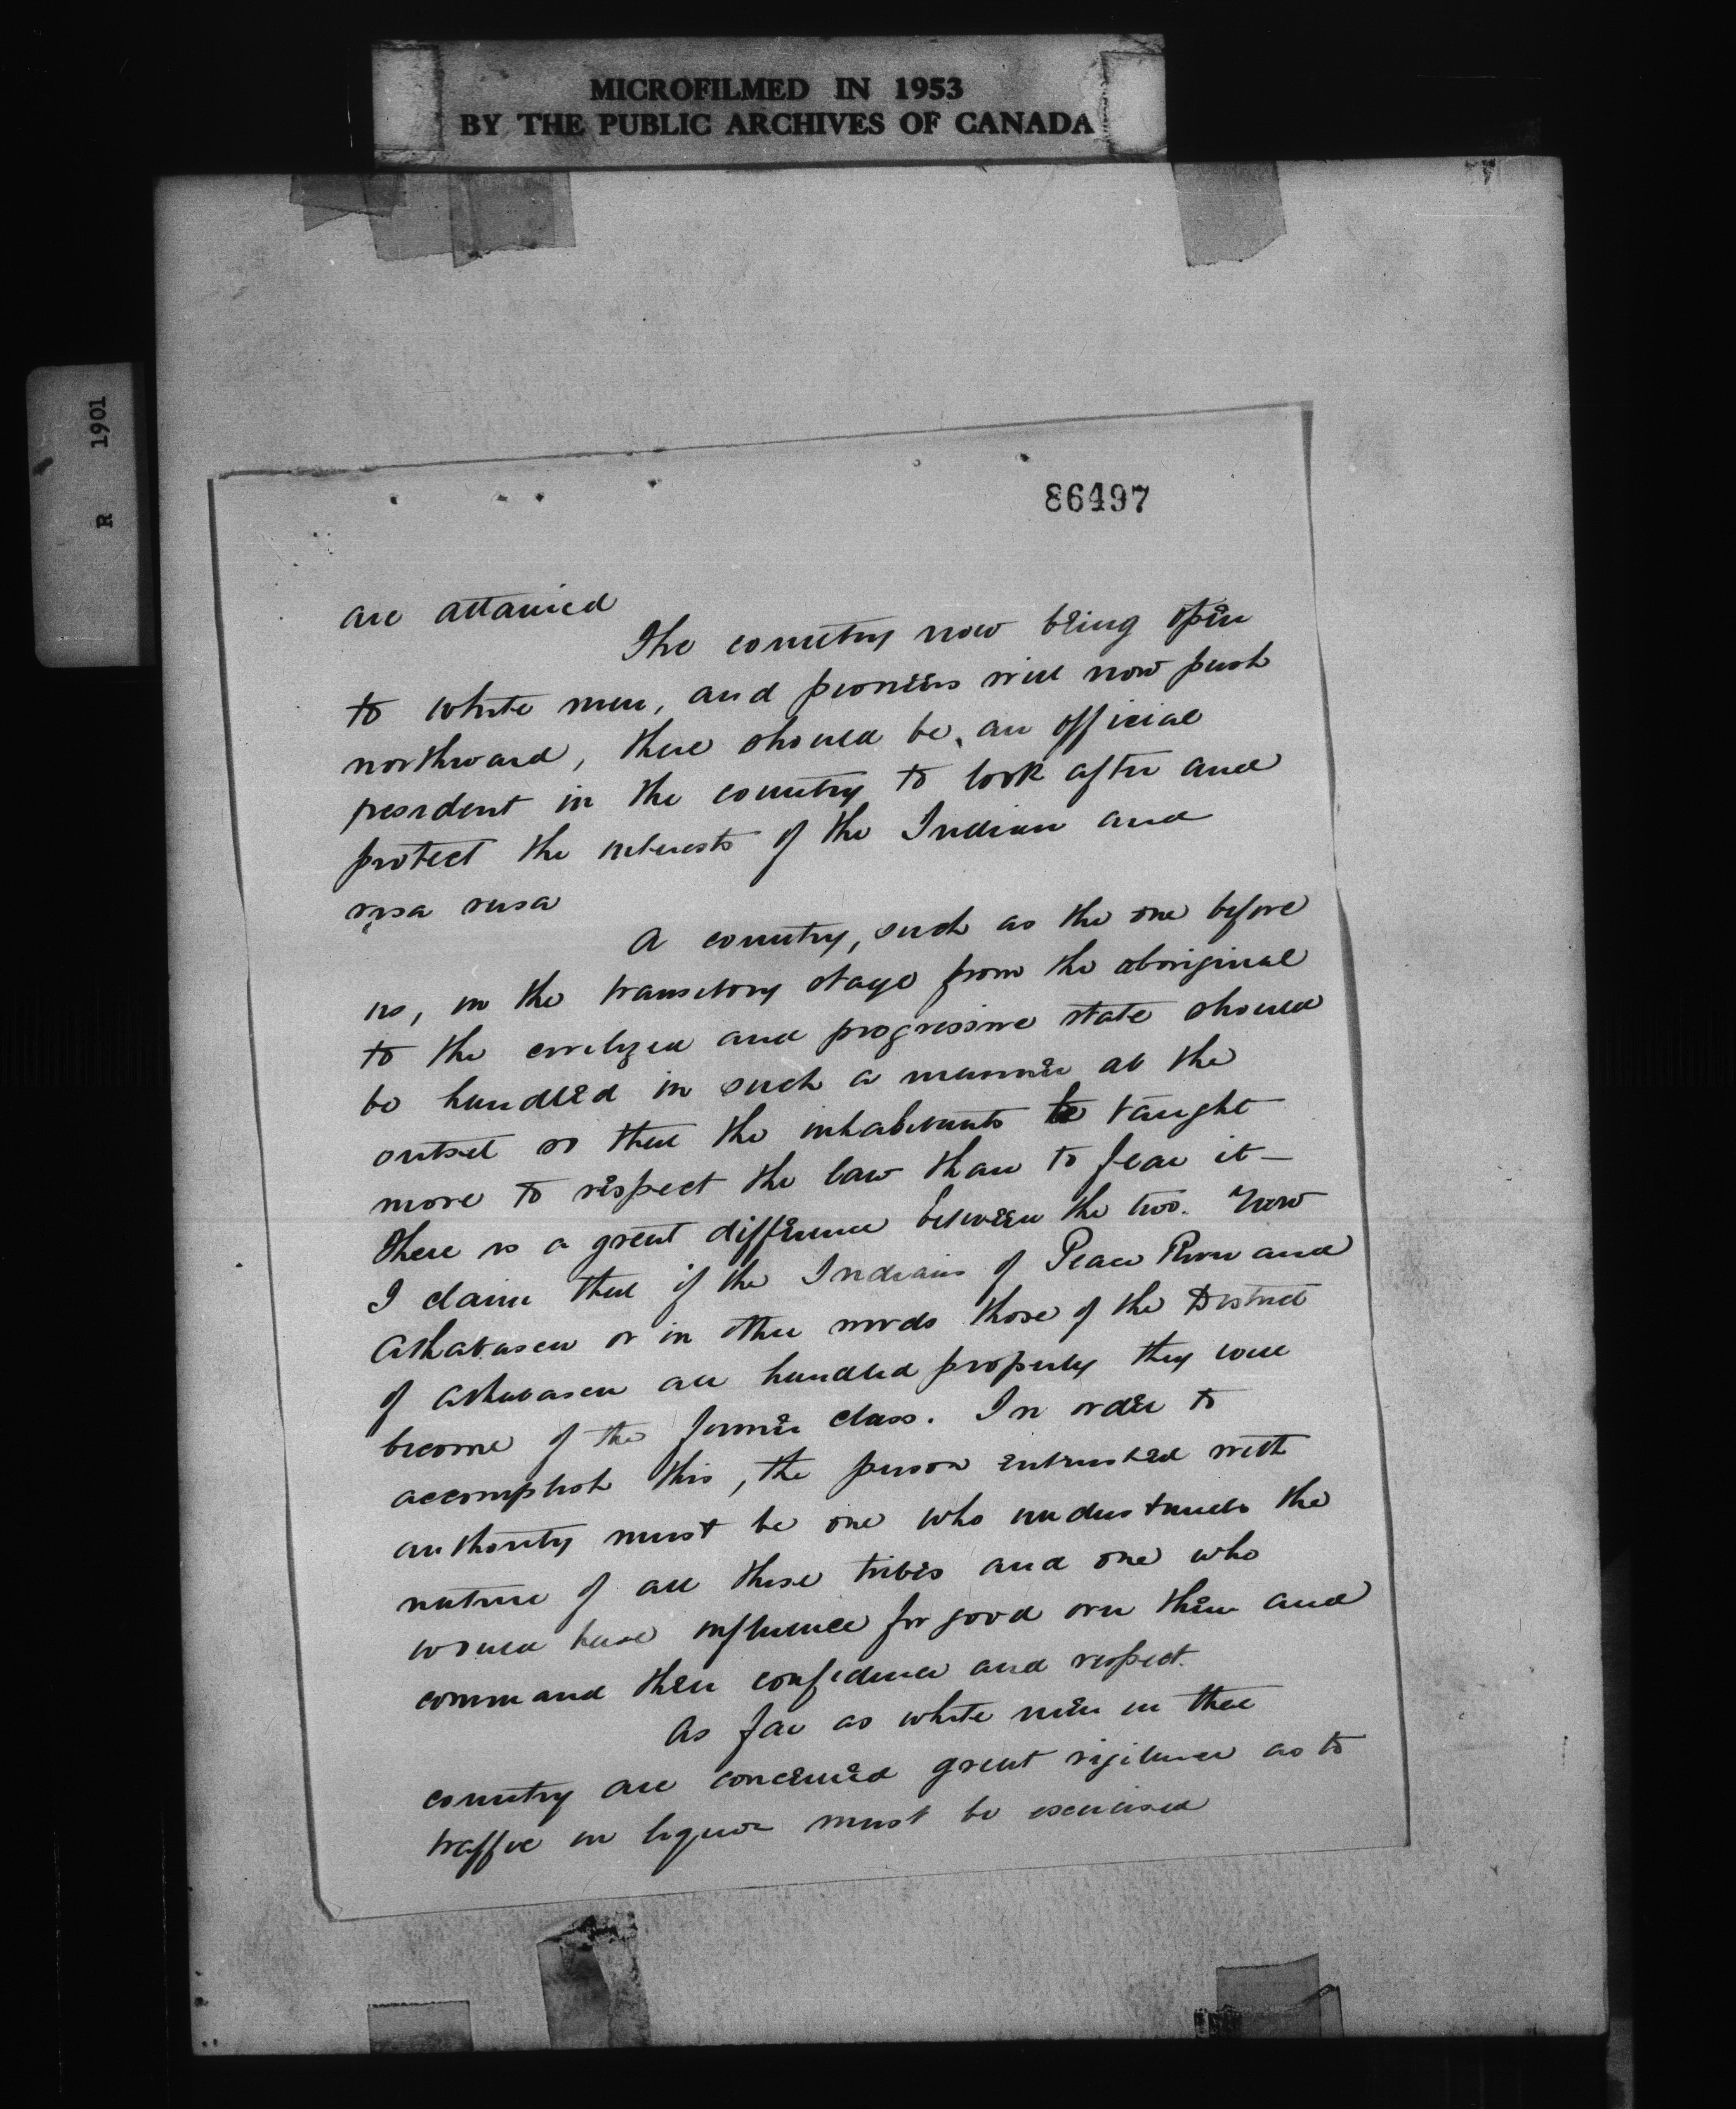 MICROFILMED IN 1953
BY THE PUBLIC ARCHIVES OF CANADA
R 1901
86497
are attained
The country now being open
to white men, and pioneers will now push
northward, there should be, an official
resident in the country to look after and
protect the interests of the Indian and
visa versa
A country, such as the one before
us, in the transitory stage from the aboriginal
to the civilized and progressive state should
be handled in such a manner at the
outset so that the inhabitants be taught
more to respect the law than to fear it —
There is a great difference between the two. Now
I claim that if the Indians of Peace River and
Athabasca or in other words those of the District
of Athabasca are handled properly they will
become of the former class. In order to
accomplish this, the person entrusted with
authority must be one who understands the
nature of all these tribes and one who
would have influence for good over them and
command their confidence and respect.
As far as white men in that
country are concerned great vigilance as to
traffic in liquor must be exercised